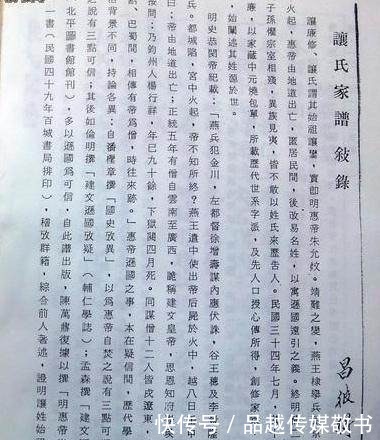 讓氏家譜敍錄
昌彼
讓廉修、讓氏謂其始祖讓鑾,實卽明惠帝朱允炆。靖難之變,燕王棣舉兵
火起,惠帝由地道出亡,匿居民間,後改易名姓,以寓遜國遠引之義。終明
子孫懼宗室相殘,異族見夷,皆不敢以姓氏來歷告人。民國三十四年七月,
廉,以家藏中元燒包單,所載歷代世系字派,及先人口授心傳所得,創修家
始闡述其姓源於世。
明史恭閔帝紀載:「燕兵犯金川,左都督徐增壽謀內應伏誅,谷王橞及李
兵。都城陷,宮中火起,帝不知所終?燕王遣中使出帝后屍於火中,越八日
曰:帝由地道出亡;正統五年有僧自雲南至廣西,詭稱建文皇帝,思恩知府
按問:乃鈞州人楊行祥,年巳九十餘,下獄閱四月死。同謀僧十二人皆戍遼東,
、巴蜀間,相傳有帝爲僧,時往來跡。」惠帝遜國之事,本在疑信間,歷代學
背景不同,持論各異。自潘檉章撰「國史攷異」,以爲惠帝自焚之說有三點可
之說有三點可信;其後如倫明撰「建文遜國攷疑」(輔仁學誌);孟森撰「建文
北平圖書館館刊),多以遜國爲可信,自此譜出版,陳萬鼐復據以撰「明惠帝
一書(民國四十九年百城書局排印),稽攷群籍,綜合前人著述,證明讓姓始
快传号/品越传媒敬书